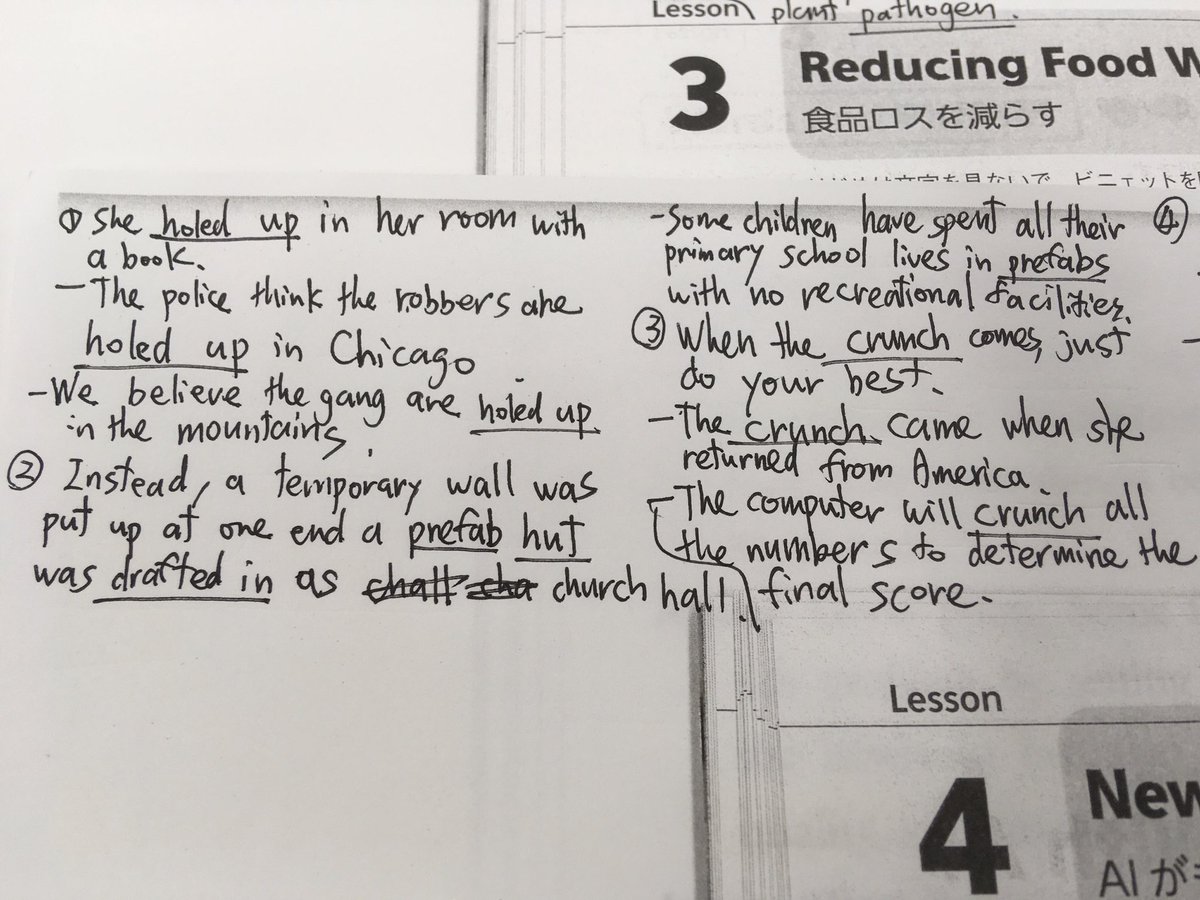 Lesson plant pathogen.
3 Reducing Food W
食品ロスを減らす
① She holed up in her room with
a book.
- The police think the robbers are
holed up in Chicago
- We believe the gang are holed up
in the mountains.
② Instead, a temporary wall was
put up at one end a prefab hut
was drafted in as church hall.
- Some children have spent all their
primary school lives in prefabs
with no recreational facilities.
③ When the crunch comes, just
do your best.
- The crunch came when she
returned from America.
- The computer will crunch all
the numbers to determine the
final score.
④
-
Lesson
4 New
AIが